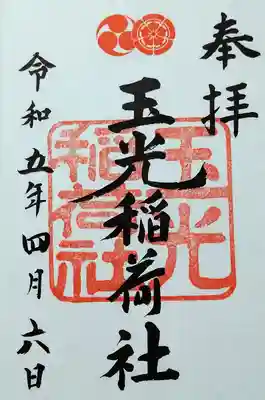 奉拝
玉光稲荷社
玉光
稲荷社
令和五年四月六日